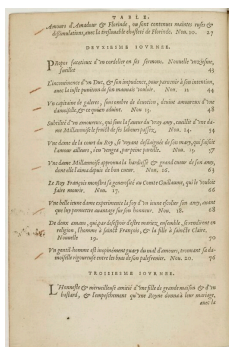 TABLE.
Amours d'Amadour & Florinde, ou sont contenues maintes ruses &
dissimulations, avec la tresloüable chasteté de Florinde. Nou. 10. 27
DEVXIESME IOVRNEE.
PRopos facetieux d'un cordelier en ses sermons. Nouvelle unziesme,
fueillet 43
L'incontinence d'un Duc, & son impudence, pour parvenir à son intention,
avec la iuste punition de son mauvais vouloir. Nou. 12 44
Un capitaine de galeres, sous ombre de devotion, devint amoureux d'une
damoiselle, & ce qui en advint. Nou. 13 48
Subtilité d'un amoureux, qui sous la faveur du vray amy, cueillit d'une da-
me Millannoise le fruict de ses labeurs passez. Nou. 14. 54
Une dame de la court du Roy, se voyant desdaignée de son mary, qui faisoit
l'amour ailleurs, s'en vengea, par peine pareille. Nou. 15 57
Une dame Millannoise approuva la hardiesse & grand coeur de son amy,
dont elle l'aima depuis de bon coeur. Nou. 16. 63
Le Roy François monstra sa generosité au Comte Guillaume, qui le vouloit
faire mourir. Nou. 17.
Une belle ieune dame experimente la foy d'un ieune escolier son amy, avant
que luy permettre avantage sur son honneur. Nou. 18. 68
De deux amans, qui par desespoir d'estre mariez ensemble, se rendirent en
religion, l'homme à sainct François, & la fille à saincte Claire.
Nouvelle 19. 70
Un gentil-homme est inopinément guary du mal d'amours, trouvant sa da-
moiselle rigoureuse entre les bras de son palefrenier. Nou. 20. 76
TROISIESME IOVRNEE.
L'Honneste & merveilleuse amitié d'une fille de grande maison & d'un
bastard, & l'empeschement qu'une Royne donna à leur mariage,
avec la